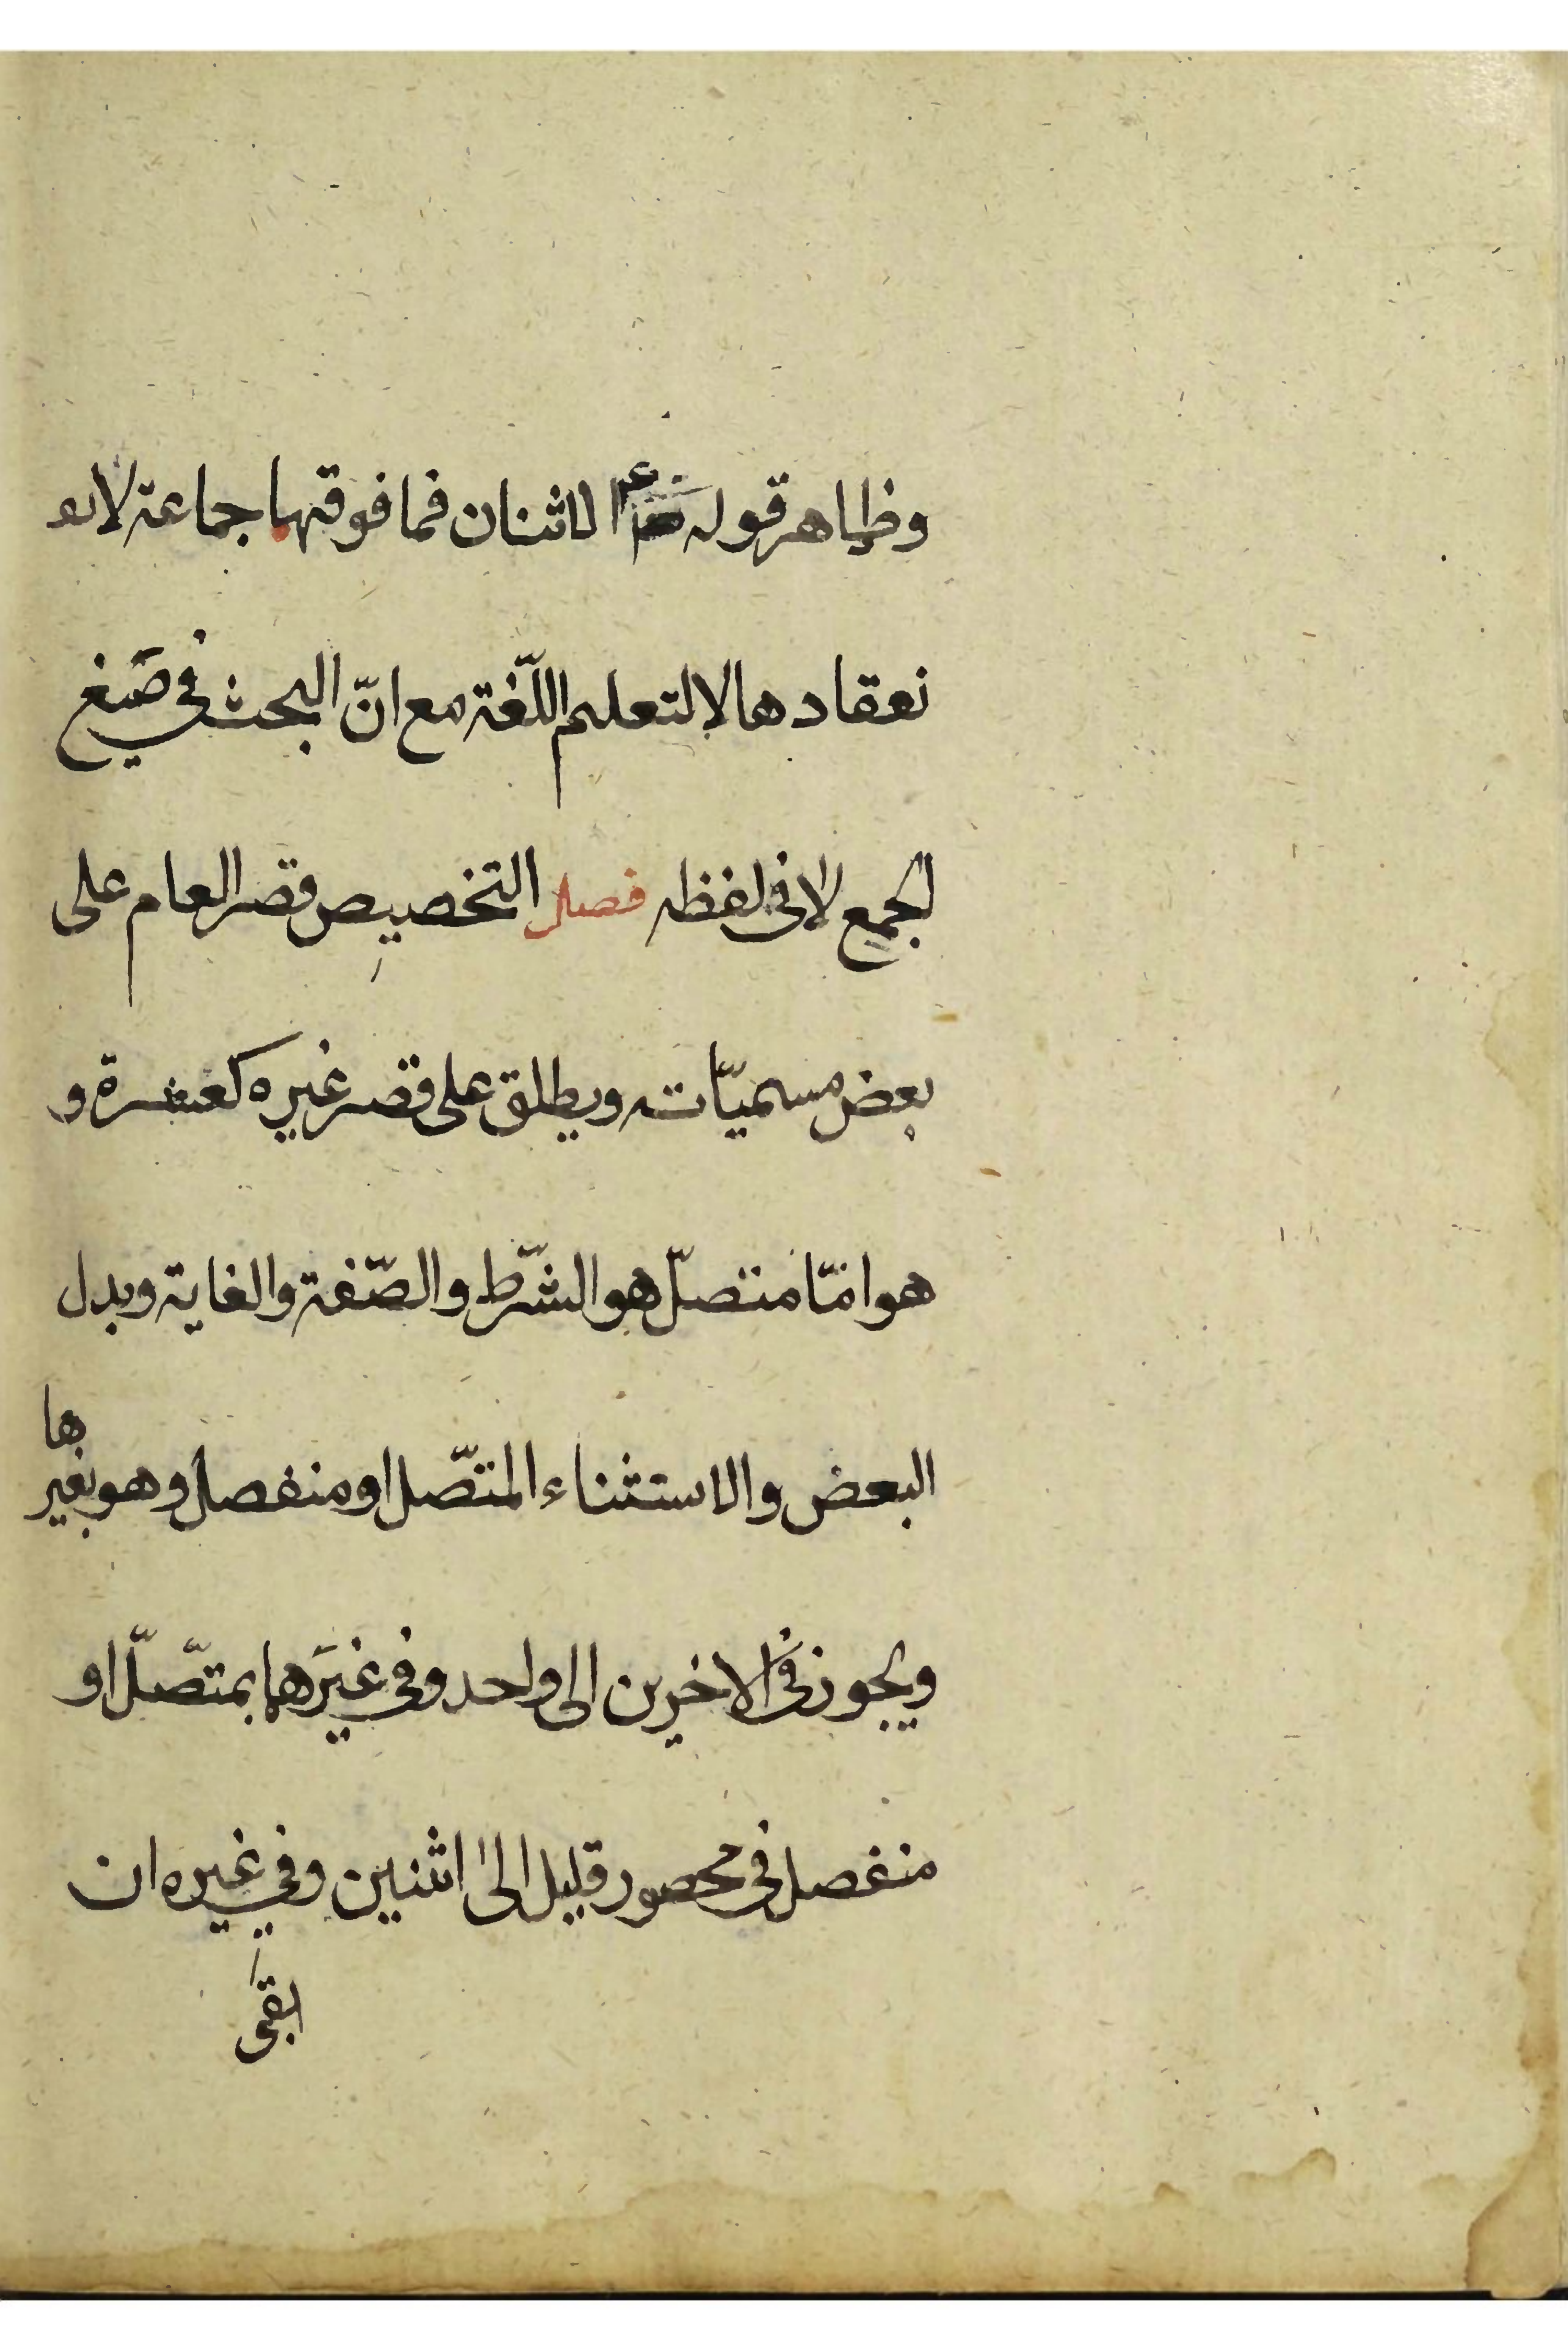 وظاهر قوله ع الاثنان فما فوقهما جماعة لا
نعقادها لا لتعليم اللّغة مع انّ البحث في صيغ
الجمع لا في لفظه فصل التخصيص قصر العام على
بعض مسميّاته ويطلق على قصر غيره كعشرة و
هو امّا متصلّ هو الشّرط والصّفة والغاية وبدل
البعض والاستثناء المتّصل او منفصل وهو بغيرها
ويجوز في الاخيرين الى واحد وفي غيرهما بمتّصلّ او
منفصل في محصور قليل الى اثنين وفي غيره ان
ابقى